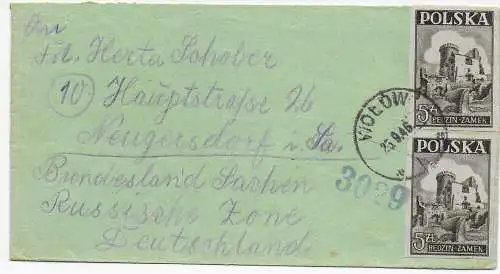 An
Frl. Herta Schober
(10) Hauptstraße 26
Neugersdorf i. Sa.
Bundesland Sachsen
Russische Zone
Deutschland
3029
POLSKA
5 ZŁ
BĘDZIN-ZAMEK
WOŁÓW
23.9.46
POLSKA
5 ZŁ
BĘDZIN-ZAMEK